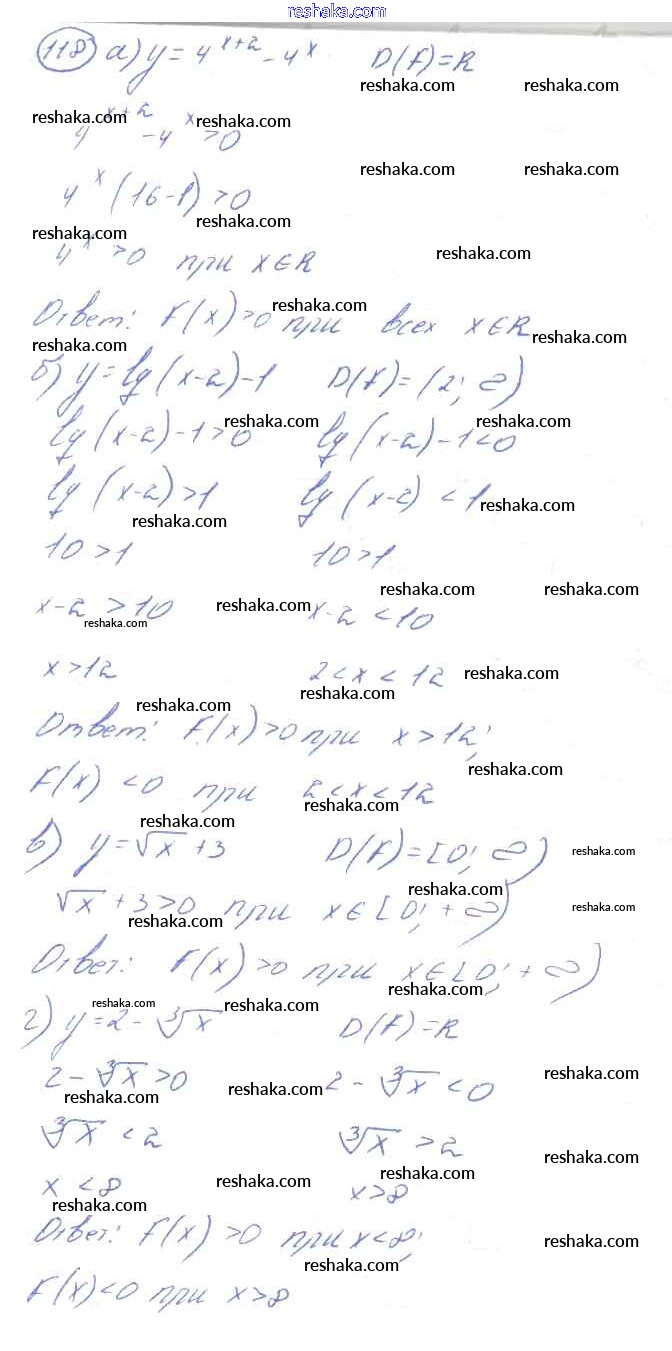 www.reshaka.com
118 а) y = 4^(x+2) - 4^x D(f) = R
reshaka.com reshaka.com
4^(x+2) - 4^x > 0
reshaka.com reshaka.com
reshaka.com reshaka.com
4^x (16-1) > 0
reshaka.com
reshaka.com
4^x > 0 при x∈R
reshaka.com
reshaka.com
Ответ: F(x)>0 при всех x∈R
reshaka.com reshaka.com
б) y = lg(x-2)-1 D(f) = (2; ∞)
lg(x-2)-1>0 lg(x-2)-1<0
reshaka.com reshaka.com
lg(x-2)>1 lg(x-2)<1
reshaka.com reshaka.com
10>1 10>1
reshaka.com reshaka.com
x-2>10 x-2<10
reshaka.com
reshaka.com
x>12 2<x<12
reshaka.com
reshaka.com
reshaka.com
Ответ: F(x)>0 при x>12;
reshaka.com
F(x)<0 при 2<x<12
reshaka.com
reshaka.com
в) y=√x+3 D(f)=[0; ∞)
reshaka.com
reshaka.com
√x+3>0 при x∈[0; +∞)
reshaka.com reshaka.com
Ответ: F(x)>0 при x∈[0; +∞)
reshaka.com
reshaka.com reshaka.com
г) y=2-∛x D(f)=R
reshaka.com
2-∛x>0 2-∛x<0
reshaka.com reshaka.com
∛x<2 ∛x>2
reshaka.com
reshaka.com
x<8 x>8
reshaka.com
reshaka.com
Ответ: F(x)>0 при x<8;
reshaka.com
reshaka.com
F(x)<0 при x>8